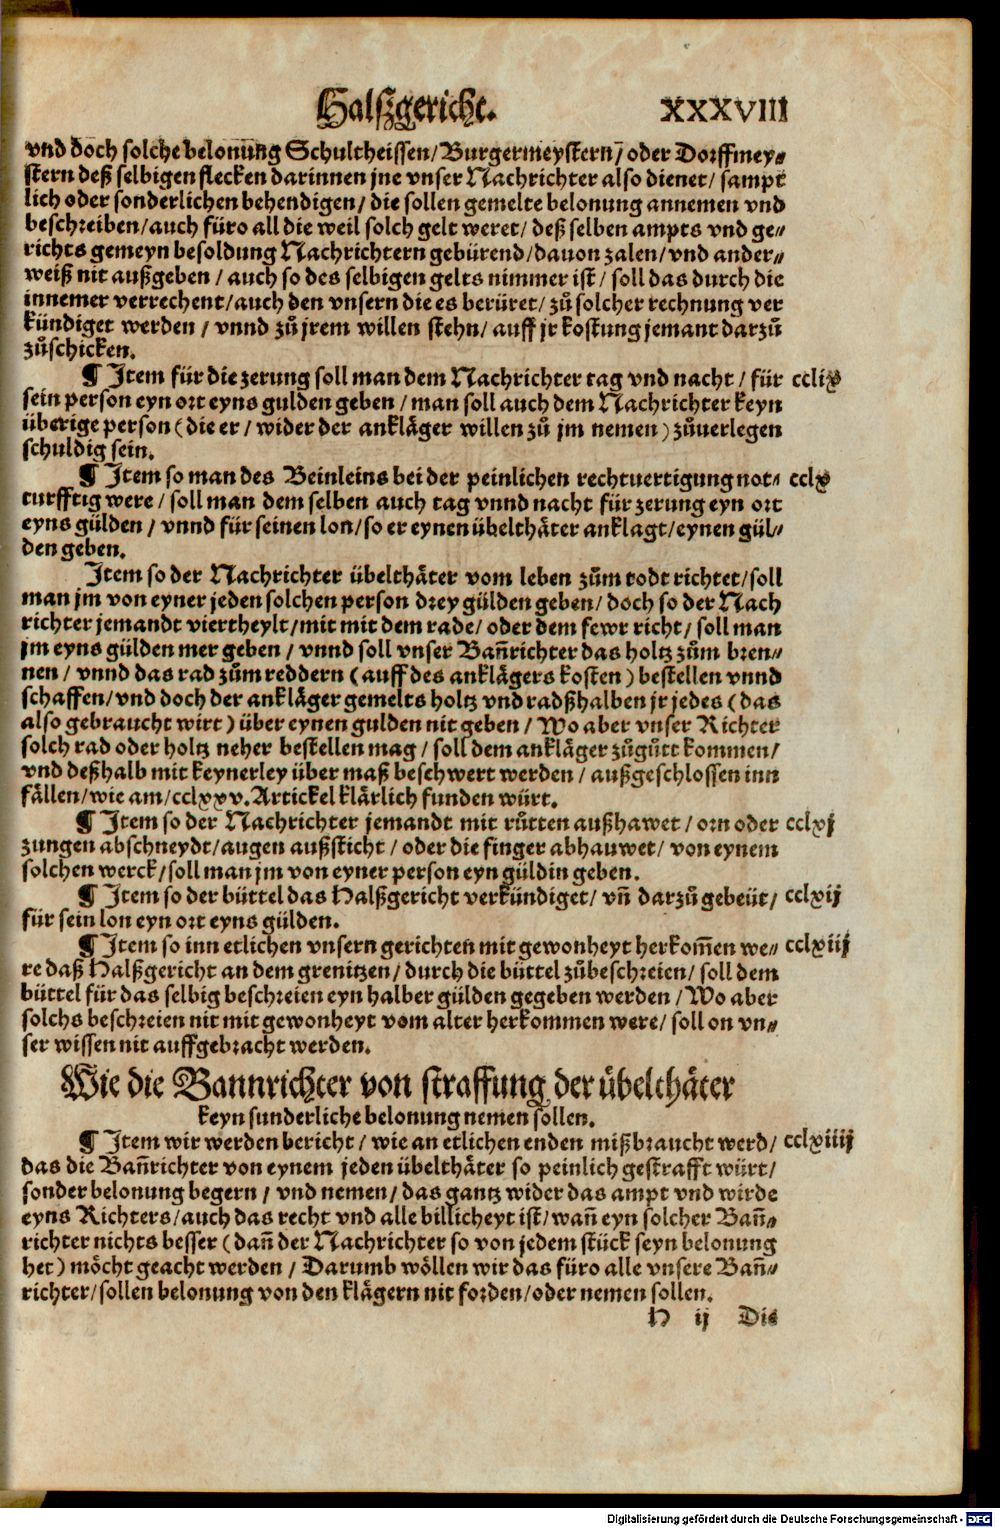 Halßgericht. XXXVIII
vnd doch solche belonu̅ng Schultheissen/Burgermeystern/ oder Dorffmey⸗
stern deß selbigen flecken darinnen jne vnser Nachrichter also dienet/ sampt
lich oder sonderlichen behendigen/ die sollen gemelte belonung annemen vnd
beschreiben/auch füro all die weil solch gelt weret/ deß selben ampts vnd ge⸗
richts gemeyn besoldung Nachrichtern gebürend/dauon zalen/vnd ander⸗
weiß nit außgeben/ auch so des selbigen gelts nimmer ist/ soll das durch die
innemer verrechent/auch den vnsern die es berüret/ zů solcher rechnung ver
kündiget werden/ vnnd zů jrem willen stehn/ auff jr kostung jemant darzů
zůschicken.
¶ Item für die zerung soll man dem Nachrichter tag vnd nacht/ für cclix
sein person eyn ort eyns gulden geben/ man soll auch dem Nachrichter keyn
überige person (die er/ wider der ankläger willen zů jm nemen) zůuerlegen
schuldig sein.
¶ Item so man des Beinleins bei der peinlichen rechtuertigung not⸗ cclx
turfftig were/ soll man dem selben auch tag vnnd nacht für zerung eyn ort
eyns gülden/ vnnd für seinen lon/so er eynen übelthäter anklagt/eynen gül⸗
den geben.
Item so der Nachrichter übelthäter vom leben zům todt richtet/soll
man jm von eyner jeden solchen person drey gülden geben/ doch so der Nach
richter jemandt viertheylt/mit mit dem rade/ oder dem fewr richt/ soll man
jm eyns gülden mer geben/ vnnd soll vnser Bañrichter das holtz zům bren⸗
nen/ vnnd das rad zům reddern (auff des anklägers kosten) bestellen vnnd
schaffen/vnd doch der ankläger gemelts holtz vnd radßhalben jr jedes (das
also gebraucht wirt) über eynen gulden nit geben/ Wo aber vnser Richter
solch rad oder holtz neher bestellen mag/ soll dem ankläger zůgůtt kommen/
vnd deßhalb mit keynerley über maß beschwert werden/ außgeschlossen inn
fällen/wie am/cclxxv. Artickel klärlich funden würt.
¶ Item so der Nachrichter jemandt mit růtten außhawet/ orn oder cclxj
zungen abschneydt/augen außsticht/ oder die finger abhauwet/ von eynem
solchen werck/soll man jm von eyner person eyn güldin geben.
¶ Item so der büttel das Halßgericht verkündiget/ vñ darzů gebeüt/ cclxij
für sein lon eyn ort eyns gülden.
¶ Item so inn etlichen vnsern gerichten mit gewonheyt herkom̅en we⸗ cclxiij
re daß Halßgericht an dem grenitzen/ durch die büttel zůbeschreien/ soll dem
büttel für das selbig beschreien eyn halber gülden gegeben werden/ Wo aber
solchs beschreien nit mit gewonheyt vom alter herkommen were/ soll on vn⸗
ser wissen nit auffgebracht werden.
Wie die Bannrichter von straffung der übelthäter
keyn sunderliche belonung nemen sollen.
¶ Item wir werden bericht/ wie an etlichen enden mißbraucht werd/ cclxiiij
das die Bañrichter von eynem jeden übelthäter so peinlich gestrafft würt/
sonder belonung begern/ vnd nemen/ das gantz wider das ampt vnd wirde
eyns Richters/auch das recht vnd alle billicheyt ist/wañ eyn solcher Bañ⸗
richter nichts besser (dañ der Nachrichter so von jedem stück seyn belonung
het) möcht geacht werden/ Darumb wöllen wir das füro alle vnsere Bañ⸗
richter/sollen belonung von den klägern nit forden/oder nemen sollen.
H ij Die
Digitalisierung gefördert durch die Deutsche Forschungsgemeinschaft - DFG